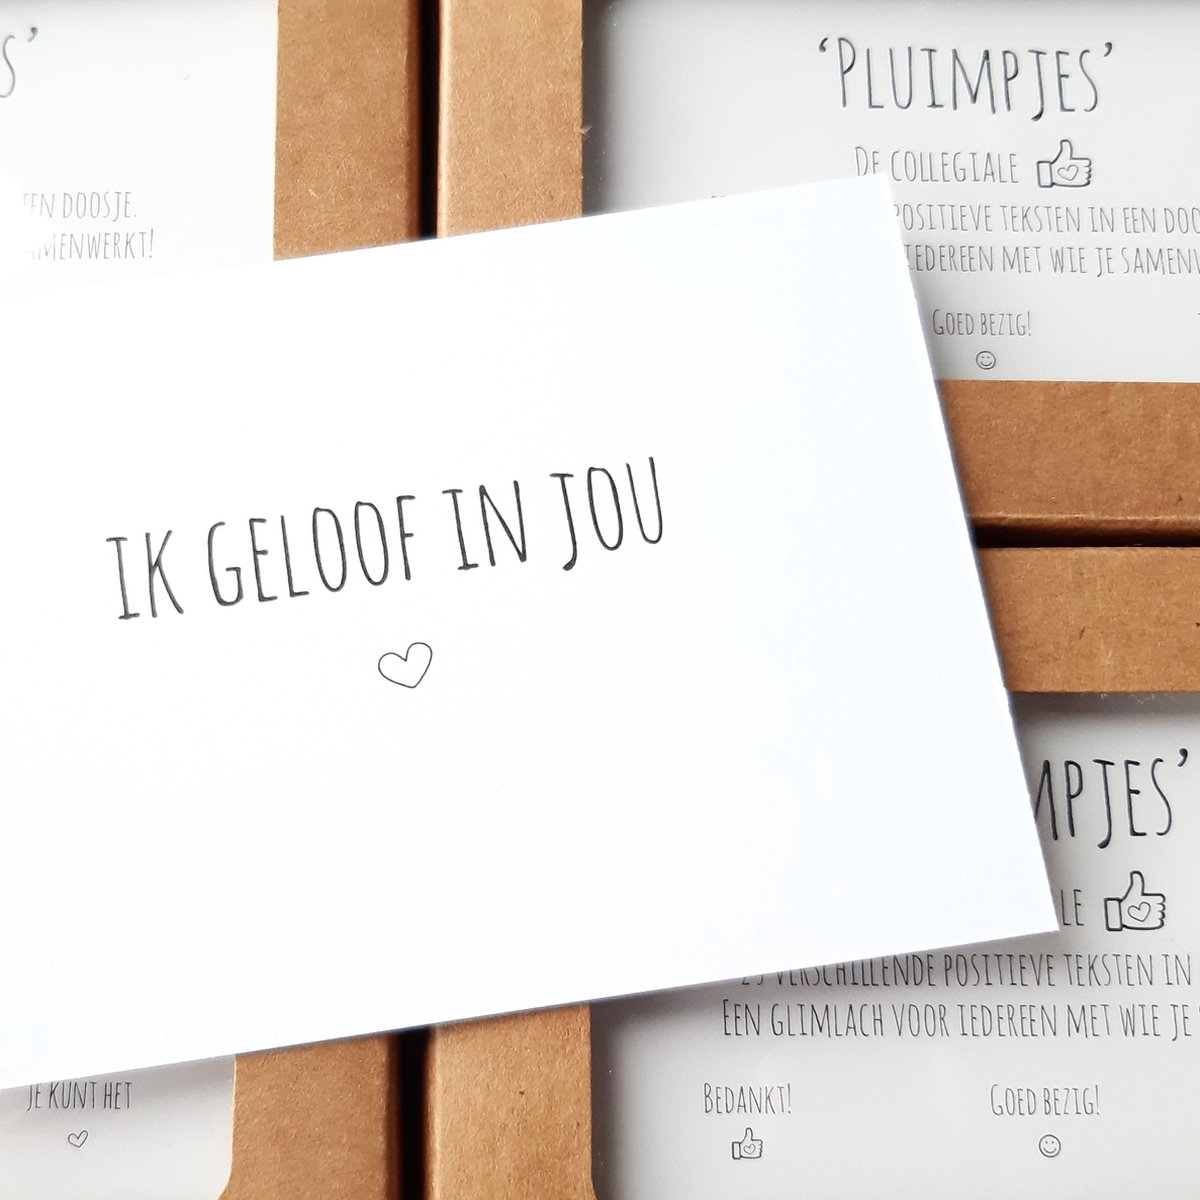 EEN DOOSJE.
SAMENWERKT!
‘PLUIMPJES’
DE COLLEGIALE
POSITIEVE TEKSTEN IN EEN
IEDEREEN MET WIE JE
GOED BEZIG!
IK GELOOF IN JOU
JE KUNT HET
25 VERSCHILLENDE POSITIEVE TEKSTEN IN
EEN GLIMLACH VOOR IEDEREEN MET WIE JE
BEDANKT!
GOED BEZIG!